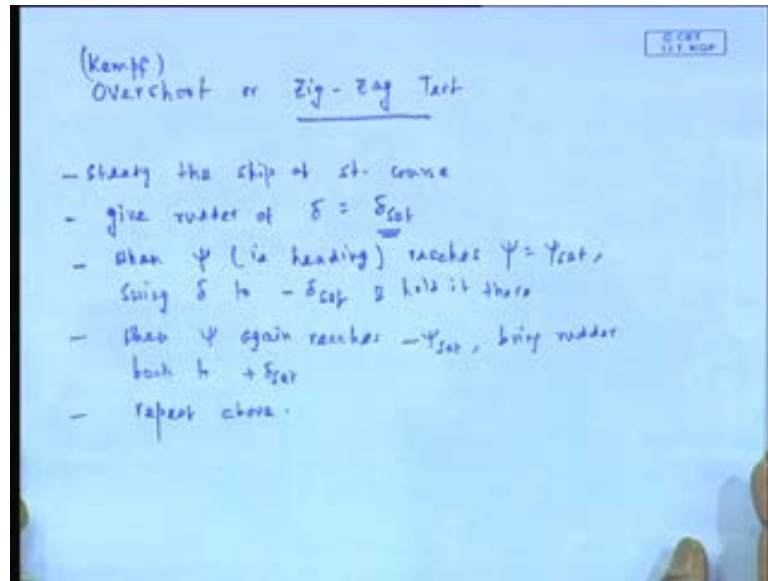 © CET
I.I.T. KGP
(Kempf)
Overshoot or Zig-Zag Test
- Steady the ship at st. course
- give rudder of δ = δset
- When ψ (ie heading) reaches ψ = ψset,
Swing δ to - δset & hold it there
- When ψ again reaches - ψset, bring rudder
back to + δset
- repeat above.